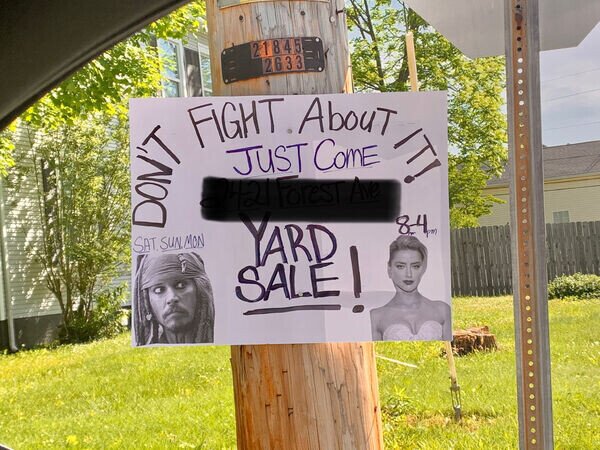 21845
2633
DON'T FIGHT ABOUT IT!
JUST COME
SAT, SUN, MON
8-4pm
YARD
SALE!